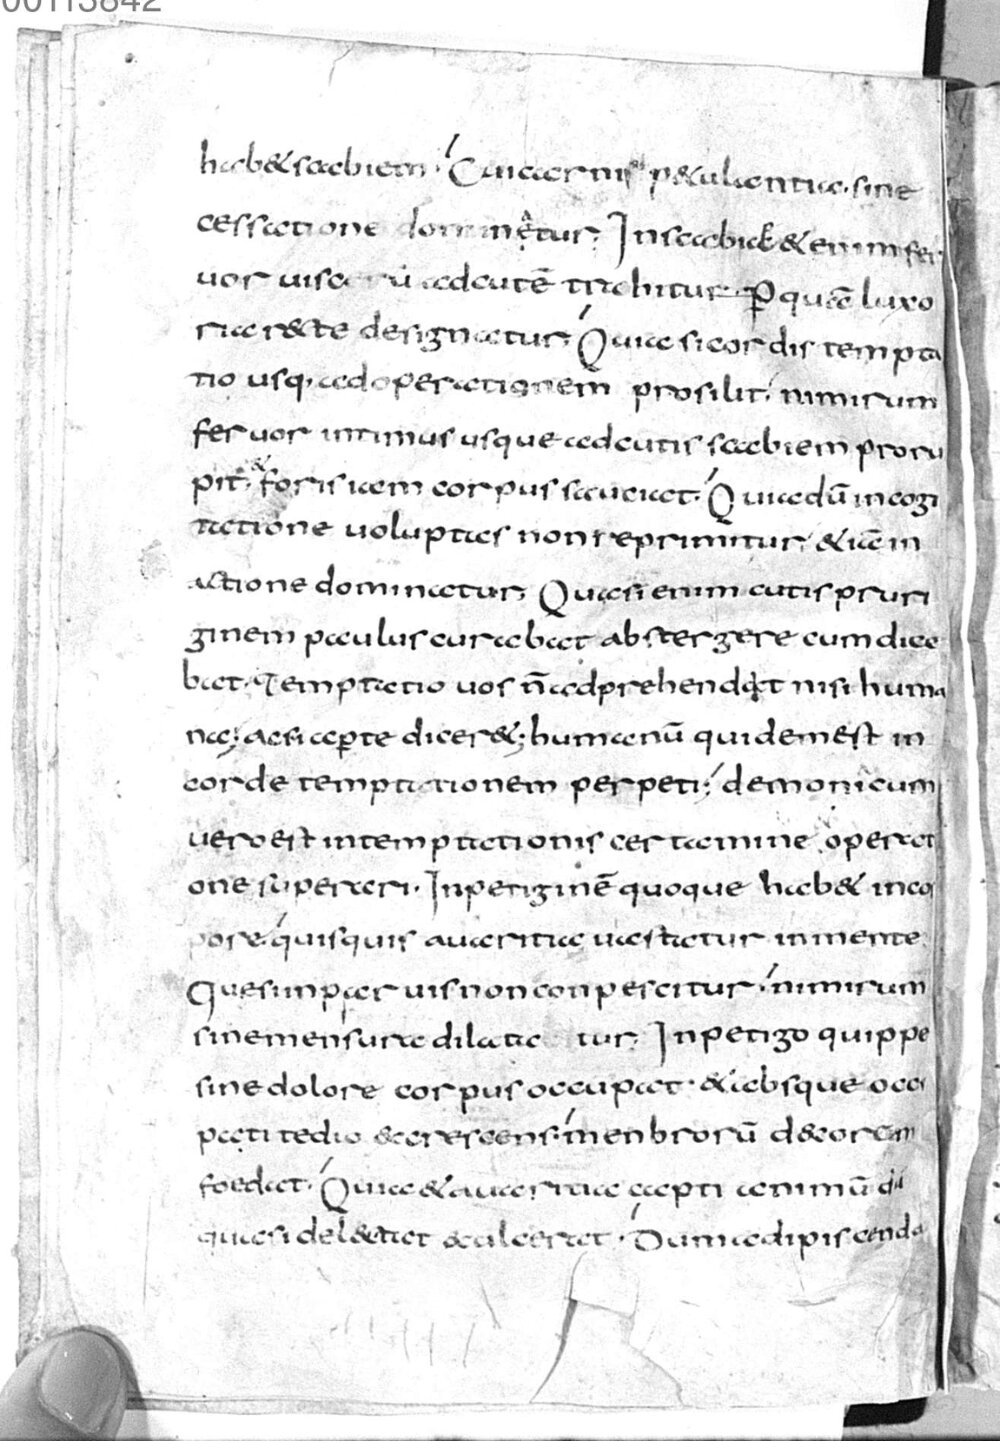 00113842
hab& scabiem. Cui carnis p&ulantia. sine
cessatione dominetur; In scabie & enim fer
uor uiscerū ad cutē trahitur. Per quā luxo
ria recte designatur; Quia si cordis tempta
tio usq; ad operationem prosilit; nimirum
feruor intimus usque ad cutis scabiem proru
pit. & foris iam corpus sauciat. Quia dū in cogi
tatione uoluptas non reprimitur; & iā in
actione dominatur; Quasi enim cutis pruri
ginem paulus curabat abstergere cum dice
bat. Temptatio uos n̄ adprehendat nisi huma
na; ac si aperte diceret; humanū quidem est in
corde temptationem perpeti; demonicum
uero est in temptationis certamine operati
one superari. Inpetiginē quoque hab& in co
pore. quisquis auaritia uastatur in mente.
Que si in paruis non conpescitur; nimirum
sine mensura dilatatur; Inpetigo quippe
sine dolore corpus occupat. & absque occu
pati tedio excrescens. menbrorū decorem
foedat. Quia & auaritia capti animū dū
quasi delectat exulcerat. Dum adipiscenda